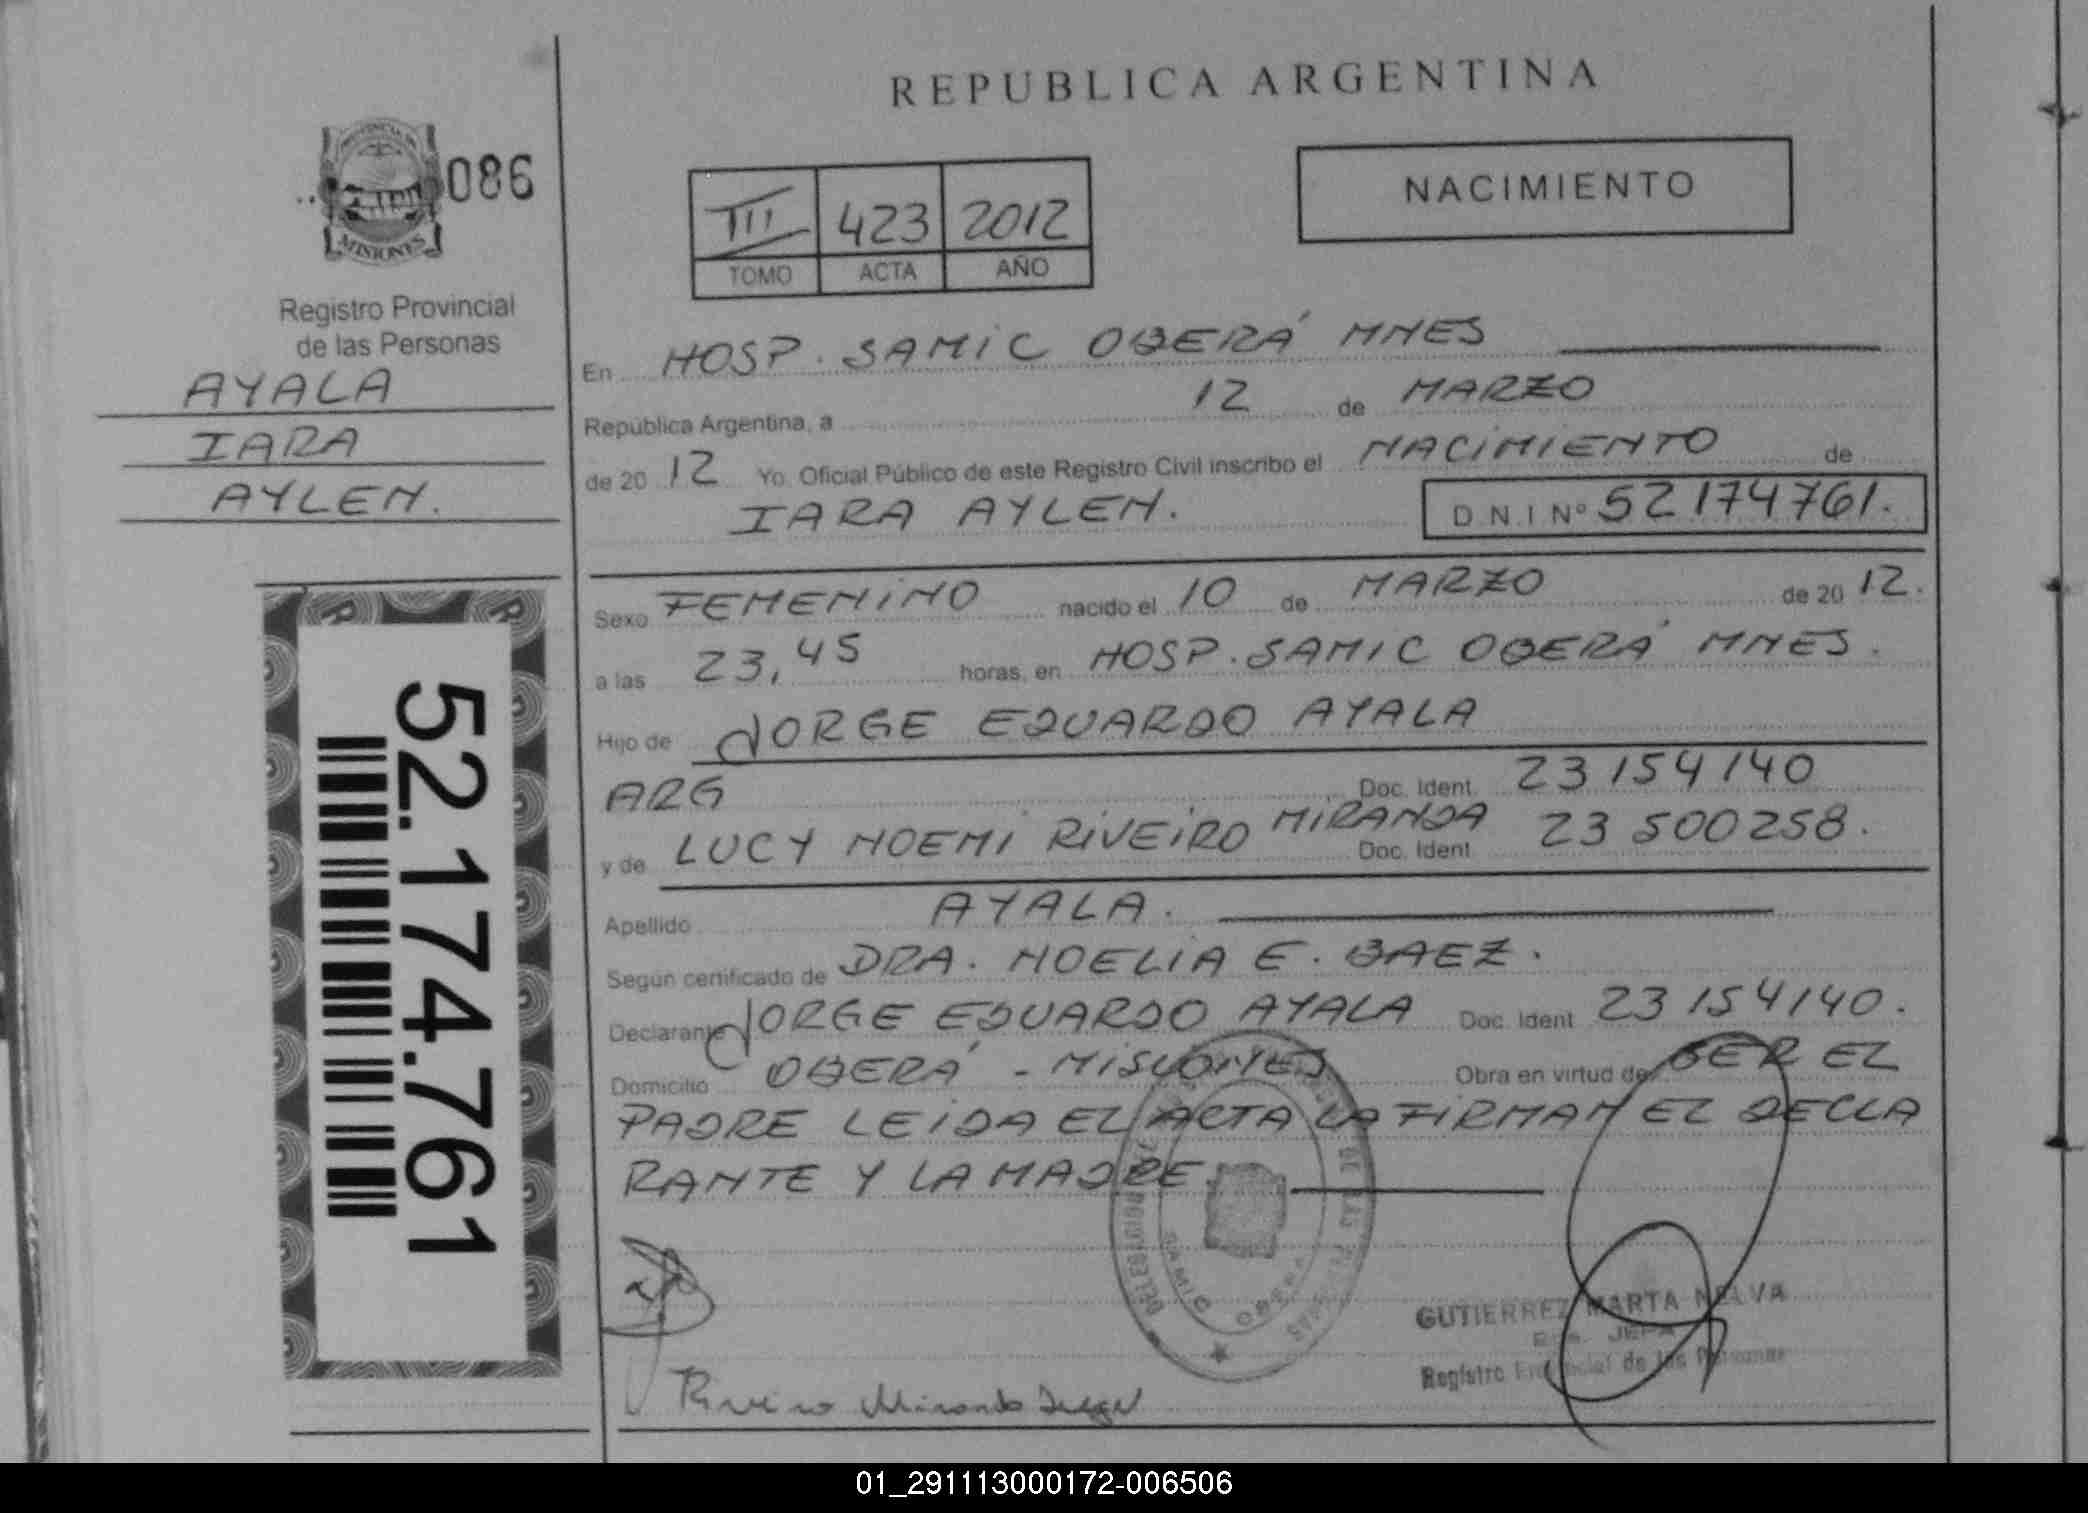 REPUBLICA ARGENTINA
PROVINCIA DE
MISIONES
086
III 423 2012
TOMO ACTA AÑO
NACIMIENTO
Registro Provincial
de las Personas
AYALA
IARA
AYLEN.
52.174.761
En HOSP. SAMIC OBERÁ MNES
República Argentina, a 12 de MARZO
de 20 12 Yo. Oficial Público de este Registro Civil inscribo el NACIMIENTO de
IARA AYLEN. D.N.I Nº 52174761.
Sexo FEMENINO nacido el 10 de MARZO de 20 12.
a las 23,45 horas, en HOSP. SAMIC OBERÁ MNES.
Hijo de JORGE EDUARDO AYALA
ARG Doc. Ident. 23154140
y de LUCY NOEMI RIVEIRO MIRANDA Doc. Ident. 23500258.
Apellido AYALA.
Según certificado de DRA. NOELIA E. BAEZ.
Declarante JORGE EDUARDO AYALA Doc. Ident 23154140.
Domicilio OBERÁ - MISIONES Obra en virtud de SER EL
PADRE LEIDA EL ACTA LA FIRMAN EL DECLA
RANTE Y LA MADRE.
SAMIC OBERA
GUTIERREZ MARTA NELVA
JEFA
Registro Provincial de las Personas
Riveiro Miranda
01_291113000172-006506